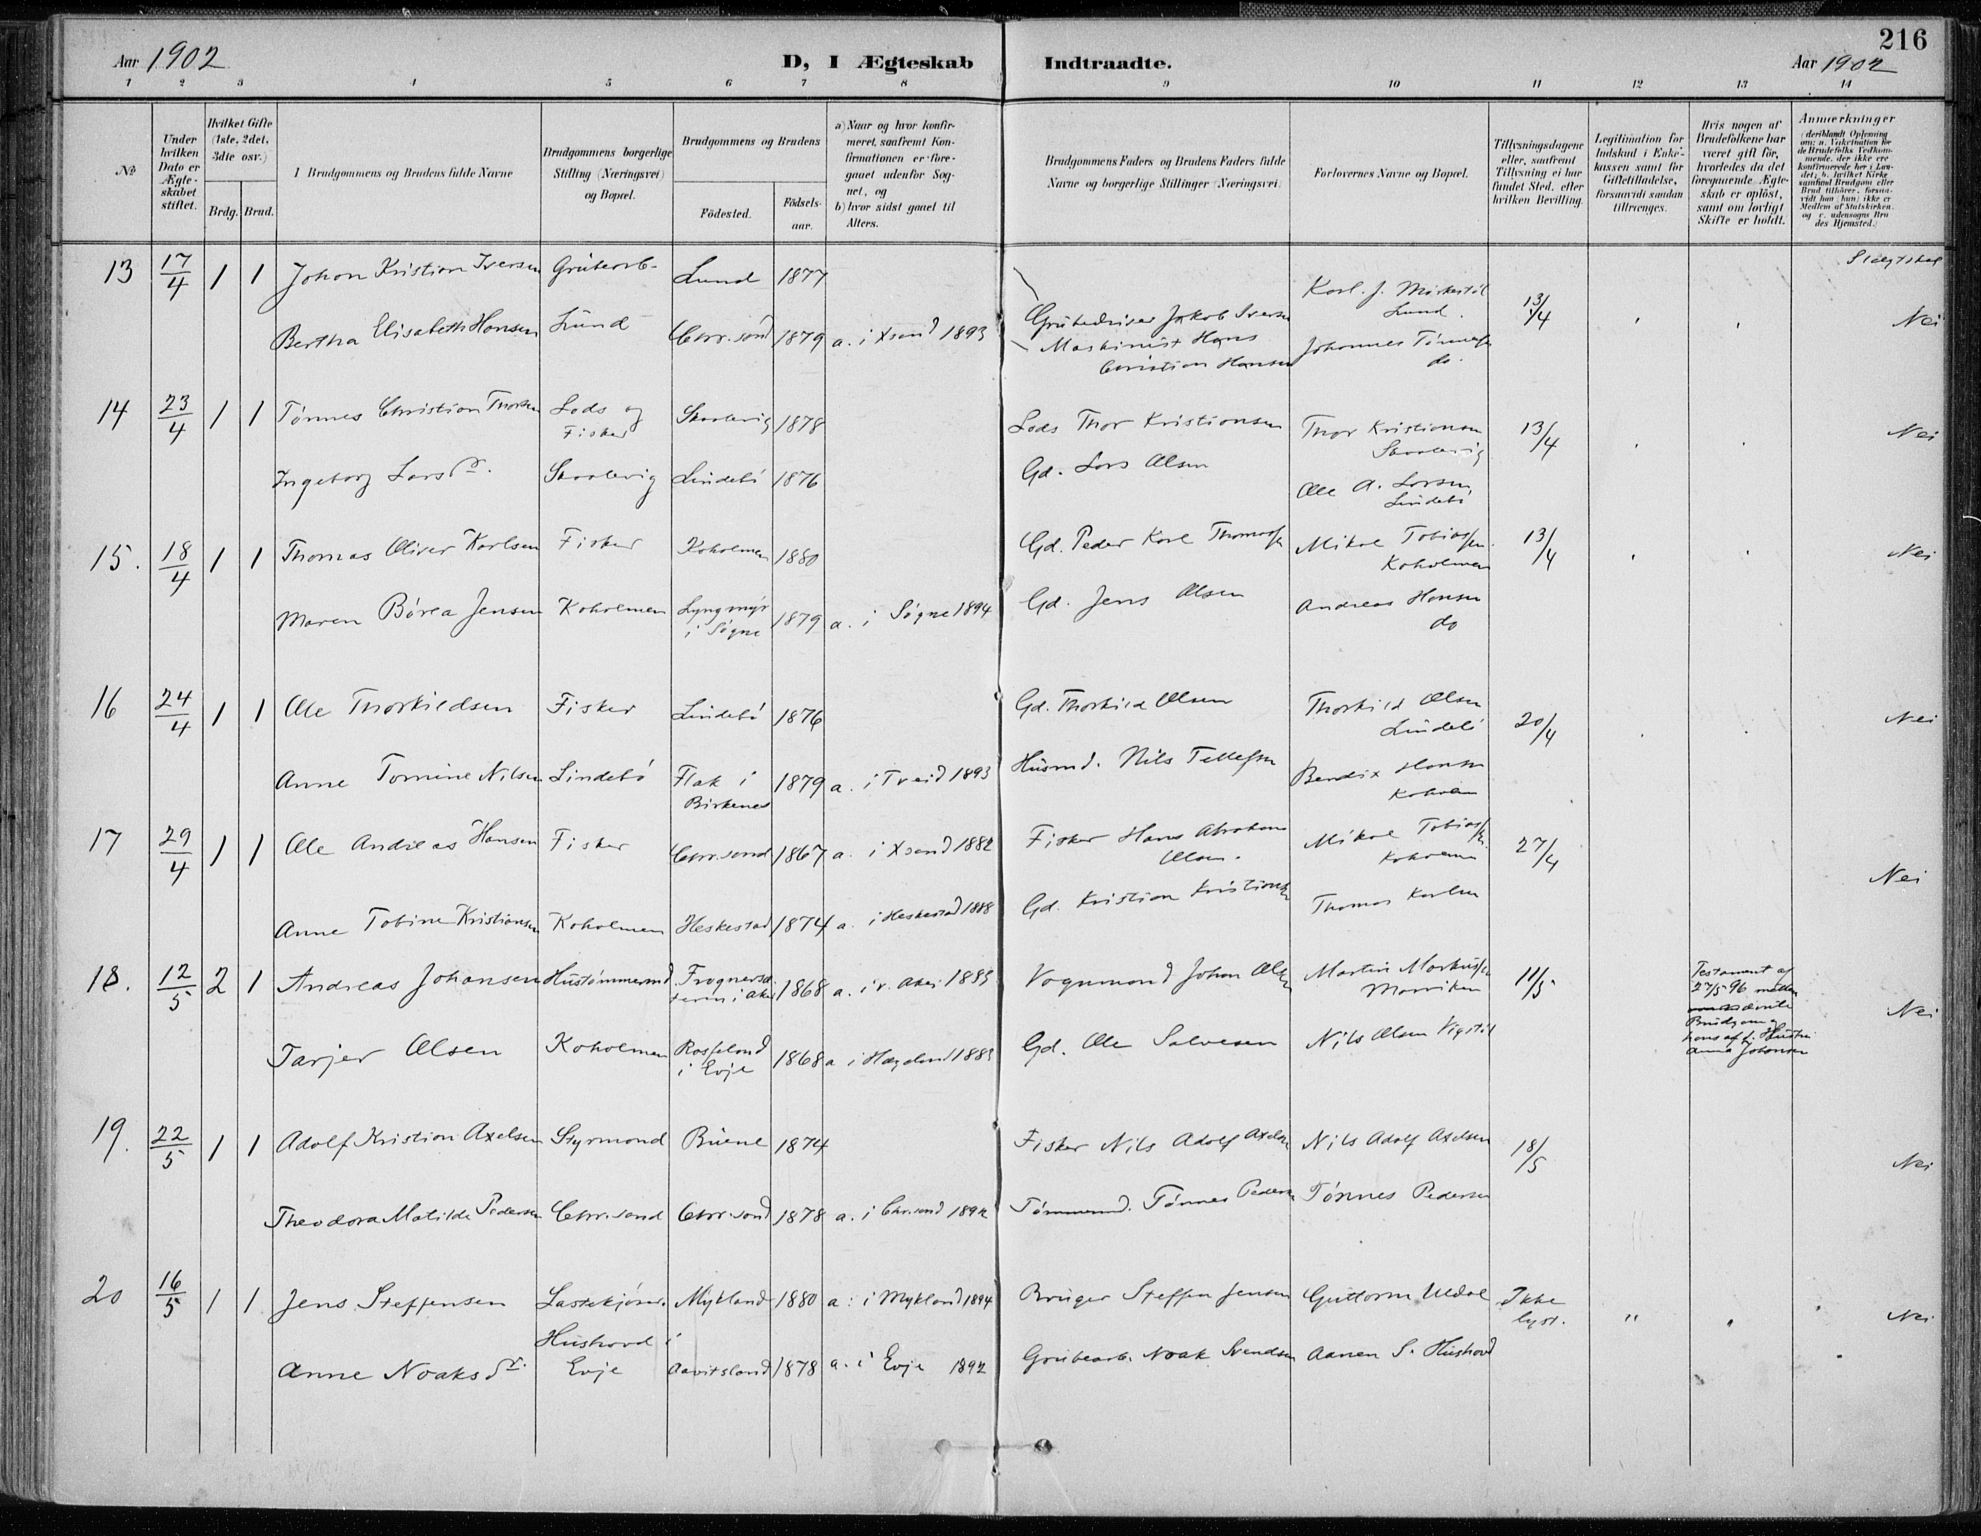 216
Aar 1902
D, I Ægteskab Indtraadte.
Aar 1902
1 2 3 4 5 6 7 8 9 10 11 12 13 14
No
Under hvilken Dato er Ægteskabet stiftet.
Hvilket Gifte (1ste, 2det, 3die osv.)
Brdg. Brud.
I Brudgommens og Brudens fulde Navne
Brudgommens borgerlige Stilling (Næringsvei) og Bopæl.
Brudgommens og Brudens
Fødested.
Fødselsaar.
a) Naar og hvor konfirmeret, saafremt Konfirmationen er foregaaet udenfor Sognet, og
b) hvor sidst gaaet til Alters.
Brudgommens Faders og Brudens Faders fulde Navne og borgerlige Stillinger (Næringsvei)
Forlovernes Navne og Bopæl.
Tillysningsdagene eller, saafremt Tillysning ei har fundet Sted, efter hvilken Bevilling.
Legitimation for Indskud i Enkekassen samt for Giftetilladelse, forsaavidt saadan tiltrænges.
Hvis nogen af Brudefolkene har været gift før, hvorledes da det foregaaende Ægteskab er opløst, samt om lovligt Skifte er holdt.
Anmærkninger
Slægtskab
13 17/4 1 1 Johan Kristian Iversen Grubearb. Lund 1877
Grubedriver Jakob Iversen Karl. J. Mørkestøl Lund. 13/4
Bertha Elisabeth Hansen Lund Chr.sand 1879 a. i Xsand 1893
Maskinist Hans Christian Hansen Johannes Tønnessen do. Nei
14 23/4 1 1 Tønnes Christian Thorsen Lods og Fisker Skaalevig 1878
Lods Thor Kristiansen Thor Kristiansen Skaalevig 13/4 Nei
Ingeborg Larsdr. Skaalevig Lindebø 1876
Gd. Lars Olsen Ole A. Larsen, Lindebø
15. 18/4 1 1 Thomas Oliver Karlsen Fisker Koholmen 1880
Gd. Peder Karl Thomassen Mikal Tobiassen. Koholmen 13/4 Nei
Maren Børea Jensen Koholmen Lyngmyr i Søgne 1879 a. i Søgne 1894
Gd. Jens Olsen Andreas Hansen do
16 24/4 1 1 Ole Thorkildsen Fisker Lindebø 1876
Gd. Thorkild Olsen Thorkild Olsen Lindebø 20/4 Nei
Anne Tomine Nilsen Lindebø Flak i Birkenes 1879 a. i Tveid 1893
Husmd. Nils Tellefsen Bendix Hansen Koholm
17 29/4 1 1 Ole Andreas Hansen Fisker Chr.sand 1867 a. i Xsand 1882
Fisker Hans Abraham Olsen. Mikal Tobiassen. Koholmen 27/4 Nei
Anne Tobine Kristiansen Koholmen Heskestad 1874 a. i Heskestad 1888
Gd. Kristian Kristiansen Thomas Karlsen
18. 12/5 2 1 Andreas Johansen Hustømmermd Frognersæteren i Aker 1868 a. i v. Aker 1883
Vognmand Johan Olsen Martin Markussen 11/5
Testament af 27/5 96 mellem Brudgom og hans afd. Hustru Anna Johansen Nei
Tarjer Olsen Koholmen Rosseland i Evje 1868 a i Hægeland 1883
Gd. Ole Salvesen Nils Olsen Vigstøl
19. 22/5 1 1 Adolf Kristian Axelsen Styrmand Buene 1874
Fisker Nils Adolf Axelsen Nils Adolf Axelsen 18/5 Nei
Theodora Matilde Pedersen Chr.sand Chr.sand 1878 a. i Chr.sand 1892
Tømmermd. Tønnes Pedersen Tønnes Pedersen
20 16/5 1 1 Jens Steffensen Lastekjører. Mykland 1880 a. i Mykland 1894
Bruger Steffen Jensen Guttorm Uldal Ikke lyst. " Nei
Anne Noaksdr. Hushovd i Evje Aavitsland 1878 a. i Evje 1892
Grubearb. Noak Svendsen Aanen S. Hushovd